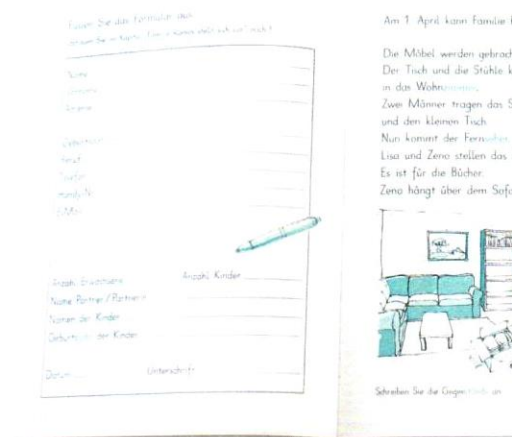 Füllen Sie das Formular aus.
Name
Vorname
Adresse
Geburtsort
Beruf
Telefon
Handy-Nr.
E-Mail
Anzahl Erwachsene
Anzahl Kinder
Name Partner / Partnerin
Namen der Kinder
der Kinder
Datum
Unterschrift
Am 1. April kann Familie
Die Möbel werden gebrach
Der Tisch und die Stühle k
in das Wohnzimmer.
Zwei Männer tragen das S
und den kleinen Tisch.
Nun kommt der Fernseher.
Lisa und Zeno stellen das
Es ist für die Bücher.
Zeno hängt über dem Sofa
Schreiben Sie die Gegen an